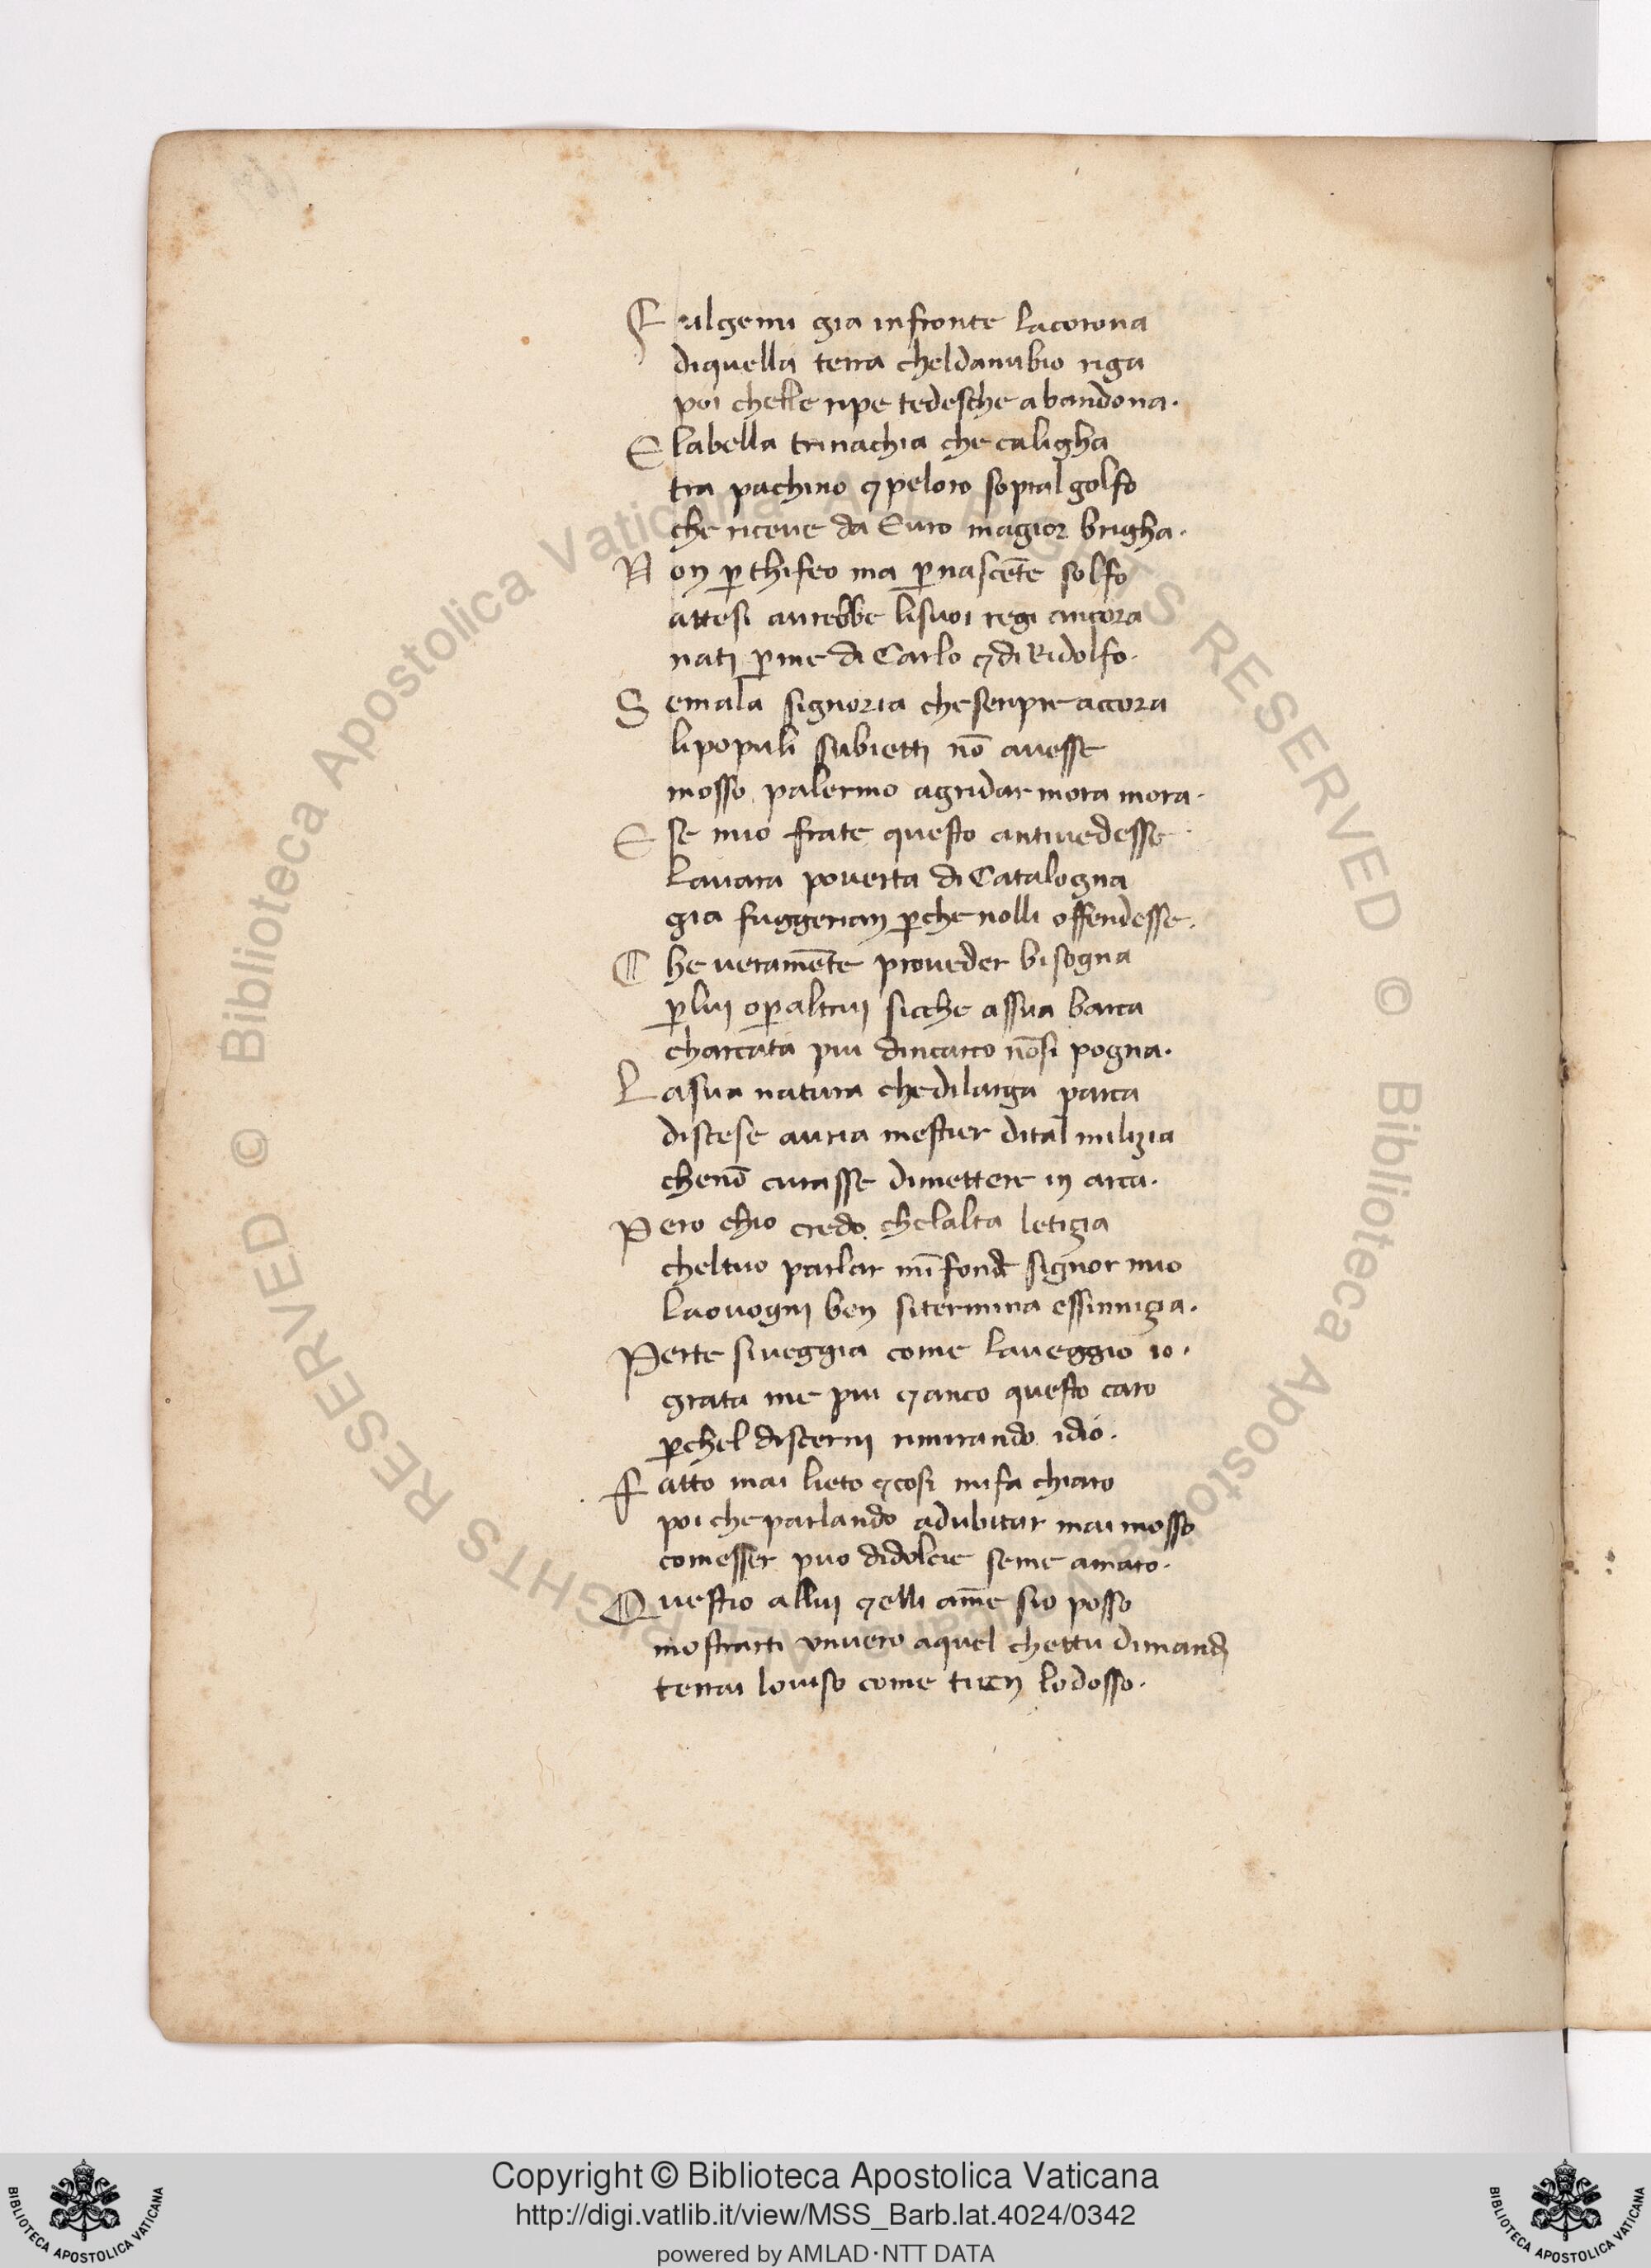 Fulgemi gia infronte lacorona
diquella terra cheldanubio riga
poi chelle ripe tedesche abandona.
E labella trinachia che caligha
tra pachino ⁊ peloro sopral golfo
che riceue da Euro magior brigha.
Non ꝑ thifeo ma ꝑ nascẽte solfo
attesi aurebbe lisuoi regi ancora
nati ꝑ me di Carlo ⁊ di Ridolfo.
Se mala signoria chesenpre accora
lipopuli subietti nõ auesse
mosso palermo agridar mora mora.
E se mio frate questo antiuedesse
lauara pouerta di Catalogna
gia fuggerian ꝑche nolli offendesse.
Che ueramẽte proueder bisogna
ꝑ lui oꝑ altrui sicche assua barca
charcata piu dincarco nõsi pogna.
Lasua natura chedilarga parca
discese auria mestier dital milizia
chenõ curasse dimettere in arca.
Pero chio credo chelalta letizia
cheltuo parlar mĩfonde signor mio
laouogni ben sitermina essinnizia.
Perte siueggia come laueggio io.
grata me piu ⁊ anco questo caro
ꝑchel discerni rimirando idio.
Fatto mai lieto ⁊ cosi mifa chiaro
poi cheparlando adubitar mai mosso
comesser puo didolcie seme amaro.
Questio allui ⁊ elli am̃e sio posso
mostrarti unuero aquel chettu dimandi
terrai louiso come tien lodosso.
© Biblioteca Apostolica Vaticana ALL RIGHTS RESERVED © Biblioteca Apostolica Vaticana ALL RIGHTS RESERVED
Copyright © Biblioteca Apostolica Vaticana
http://digi.vatlib.it/view/MSS_Barb.lat.4024/0342
powered by AMLAD·NTT DATA
BIBLIOTECA APOSTOLICA VATICANA
BIBLIOTECA APOSTOLICA VATICANA